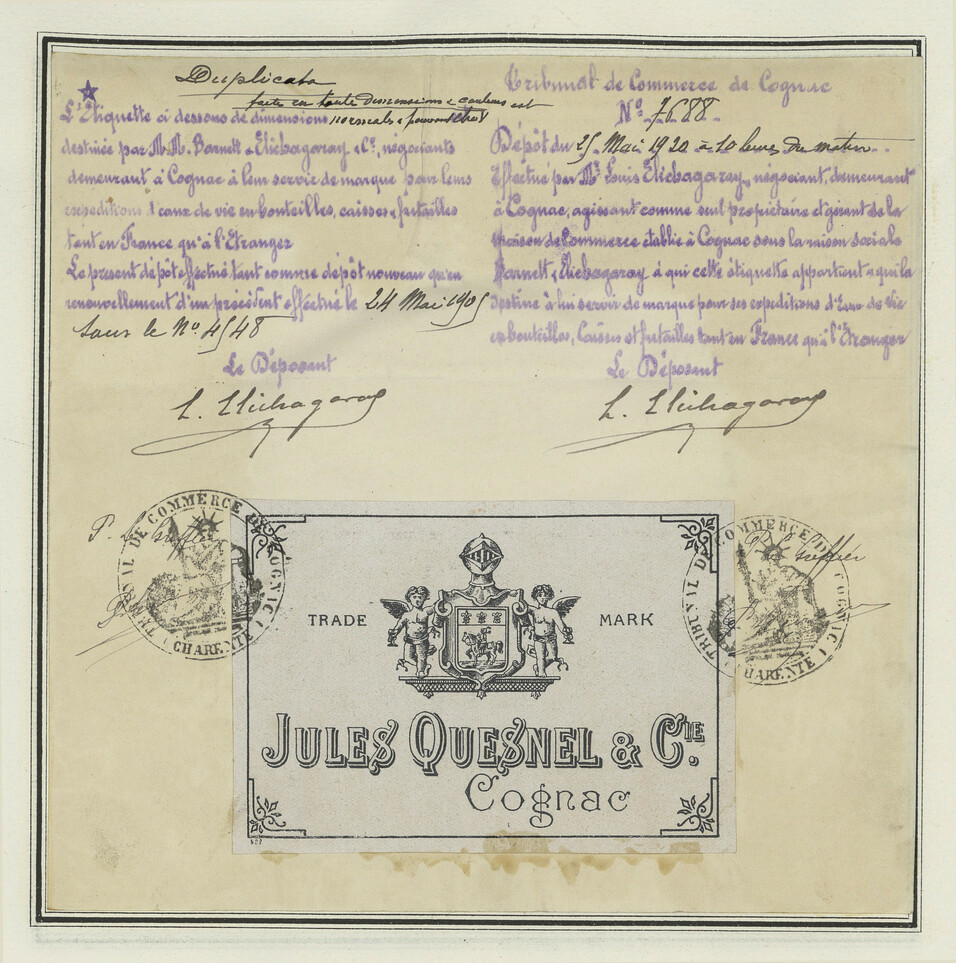 Duplicata
faite en toute dimensions & couleurs est
L'Etiquette ci dessous de dimensions normales & pouvant être
destinée par M.M. Barnett & Elichagaray & Cie, négociants
demeurant à Cognac à leur service de marque pour leurs
expéditions d'eaux de vie en bouteilles, caisses & futailles
tant en France qu'à l'Etranger
Le présent dépôt effectué tant comme dépôt nouveau qu'en
renouvellement d'un précédent effectué le 24 Mai 1905
sous le No. 4548
Le Déposant
L. Elichagaray
Tribunal de Commerce de Cognac
No. 7688
Dépôt du 25 Mai 1920 à 10 heures du matin
Effectué par Mr Louis Elichagaray, négociant, demeurant
à Cognac, agissant comme seul propriétaire et gérant de la
Maison de Commerce établie à Cognac sous la raison sociale
Barnett & Elichagaray à qui cette étiquette appartient & qui la
destine à lui servir de marque pour ses expéditions d'Eaux de Vie
en bouteilles, Caisses et futailles tant en France qu'à l'Etranger
Le Déposant
L. Elichagaray
P. Le Greffier
TRIBUNAL DE COMMERCE DE COGNAC
CHARENTE
P. Le Greffier
TRIBUNAL DE COMMERCE DE COGNAC
CHARENTE
TRADE MARK
JULES QUESNEL & CIE.
Cognac